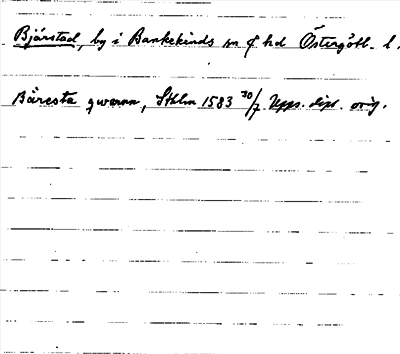 Bjärstad, by i Bankekinds sn o hd Östergötl. l.
Bäresta qwarnn, Sthlm 1583 30/7 Upps. dipl. orig.